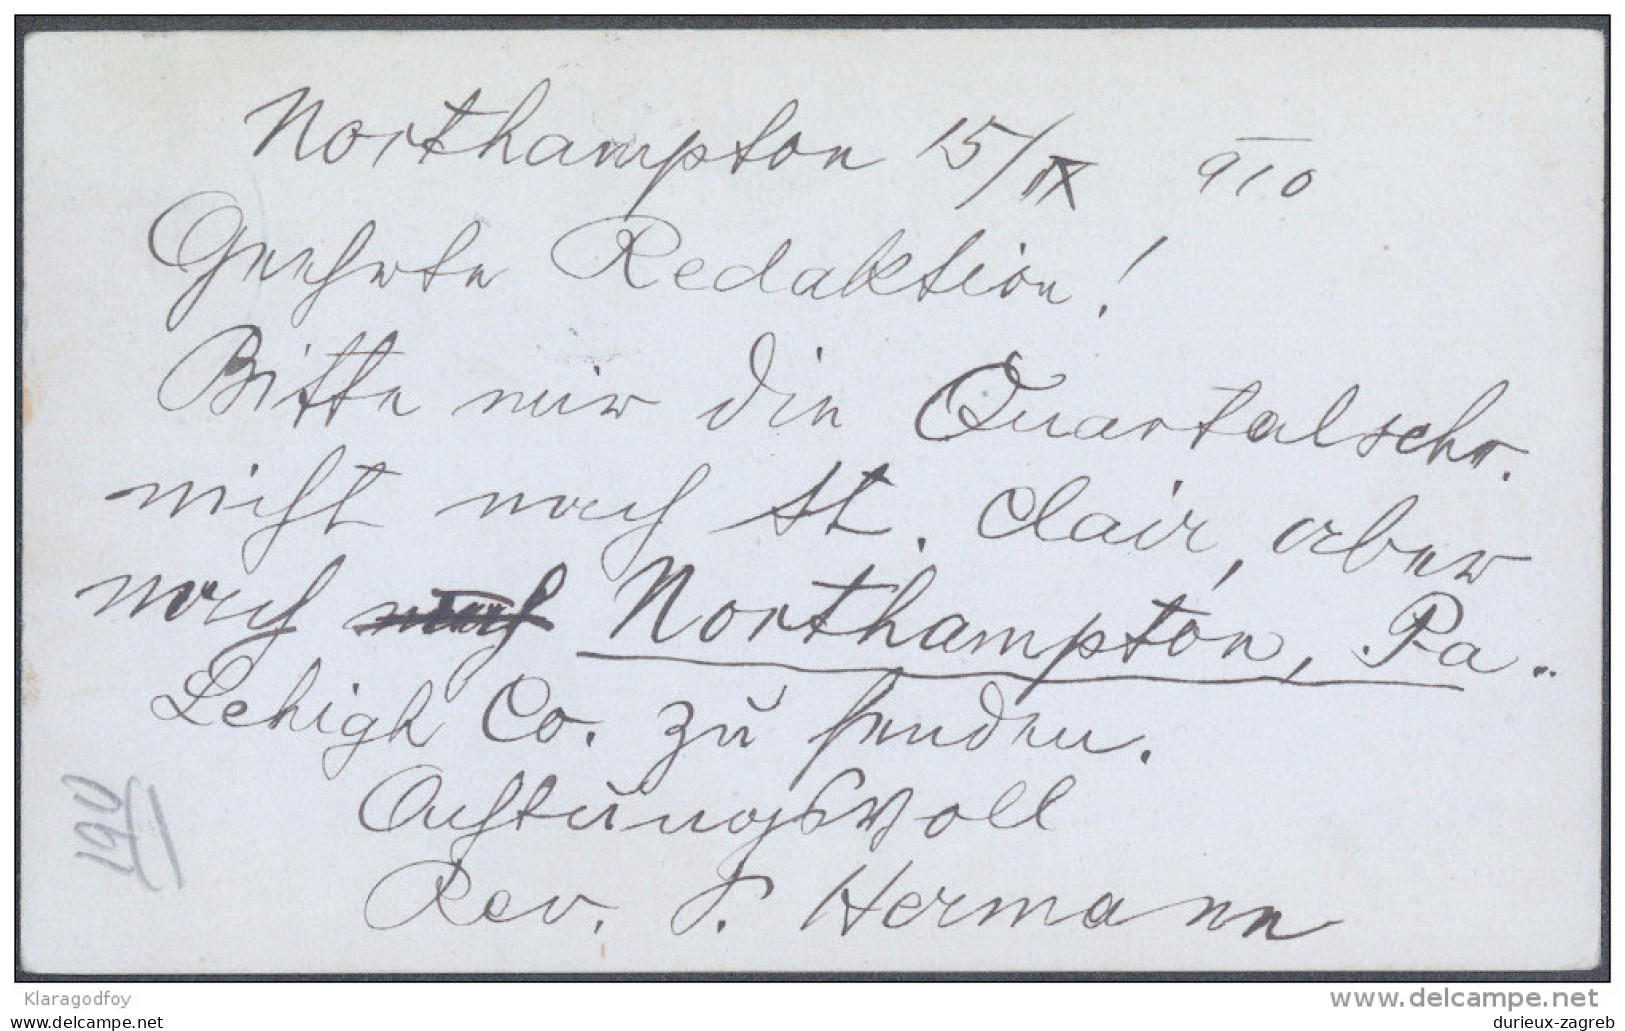 Northampton 15/IX 910
Geehrte Redaktion!
Bitte mir die Quartalschr.
nicht nach St. Clair, aber
nach Northampton, Pa..
Lehigh Co. zu senden.
Achtungsvoll
Rev. S. Hermann
Klaragodfoy
www.delcampe.net
durieux-zagreb